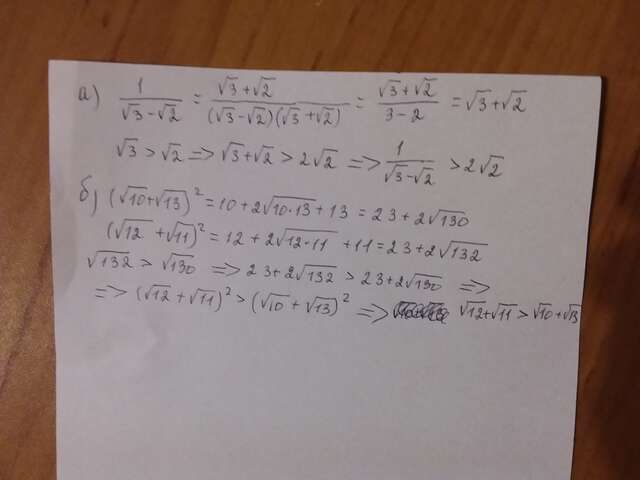 а) 1/(√3-√2) = (√3+√2)/((√3-√2)(√3+√2)) = (√3+√2)/(3-2) = √3+√2
√3 > √2 => √3+√2 > 2√2 => 1/(√3-√2) > 2√2
б) (√10+√13)² = 10+2√10·13+13 = 23+2√130
(√12+√11)² = 12+2√12·11+11 = 23+2√132
√132 > √130 => 23+2√132 > 23+2√130 =>
=> (√12+√11)² > (√10+√13)² => √12+√11 > √10+√13